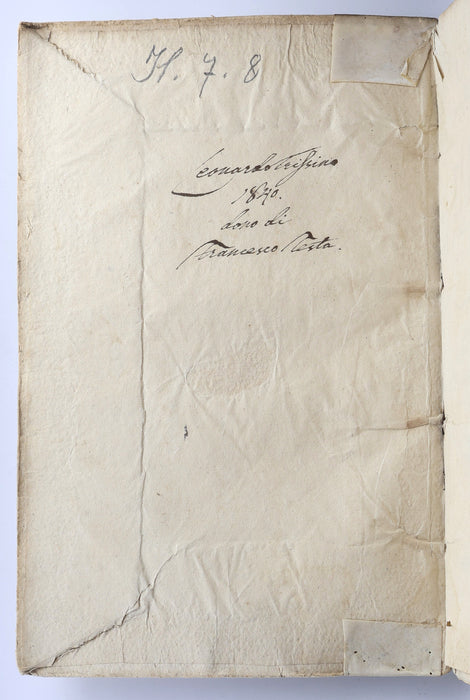 H. 7. 8
Leonardo Trissino
1840.
dono di
Francesco Testa.